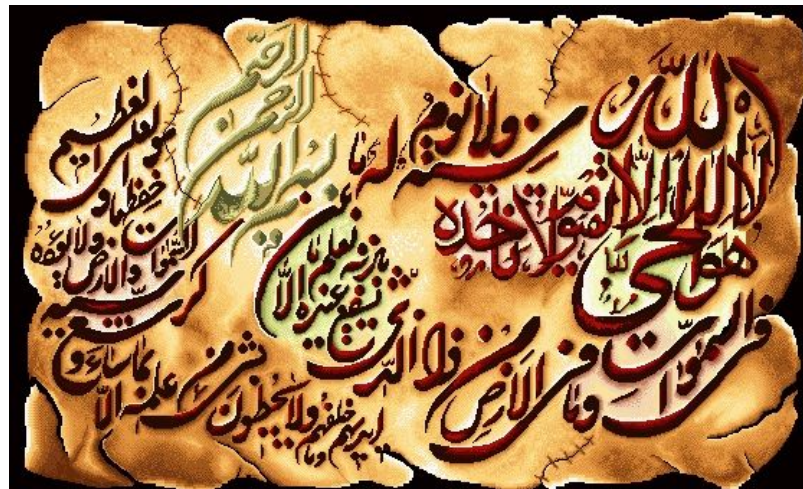 بسم الله الرحمن الرحيم
الله لا إله إلا هو الحي القيوم لا تأخذه
سنة ولا نوم له ما
في السموات وما في الأرض من ذا الذي
يشفع عنده إلا بإذنه يعلم ما بين
أيديهم وما خلفهم ولا يحيطون
بشيء من علمه إلا بما شاء وسع
كرسيه السموات والأرض ولا يؤده
حفظهما وهو العلي العظيم